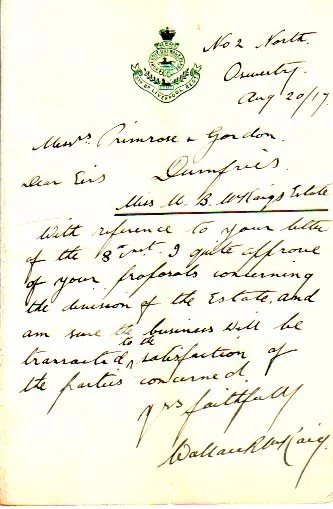 No 2 North.
Oswestry.
Aug 20/17
Messrs Primrose & Gordon.
Dumfries.
Dear Sirs
Miss M. B. McKaigs Estate
With reference to your letter
of the 8th inst. I quite approve
of your proposals concerning
the division of the Estate, and
am sure the business will be
transacted to the satisfaction of
the parties concerned.
Yrs faithfully
Wallace R McKaig.